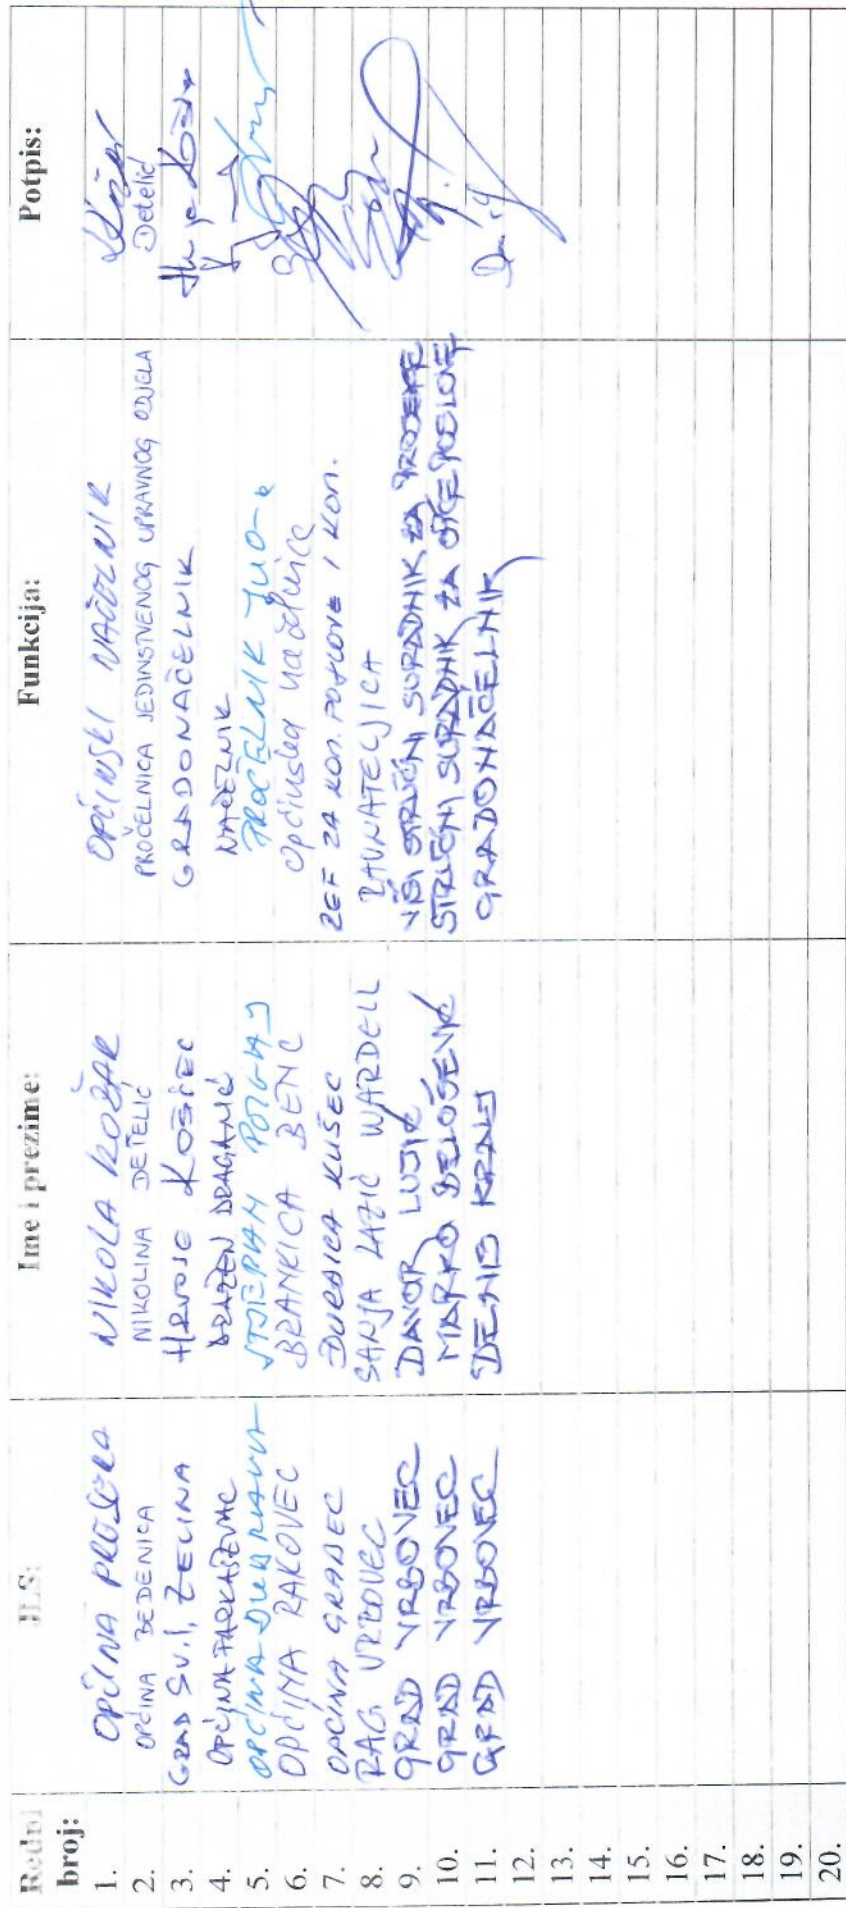 Redni broj: JLS: Ime i prezime: Funkcija: Potpis:
1. OPĆINA PRESEKA NIKOLA KOŽAR OPĆINSKI NAČELNIK
2. OPĆINA BEDENICA NIKOLINA DETELIĆ PROČELNICA JEDINSTVENOG UPRAVNOG ODJELA Detelić
3. GRAD SV. I. ZELINA HRVOJE KOŠĆEC GRADONAČELNIK
4. OPĆINA FARKAŠEVAC DRAŽEN DRAGANIĆ NAČELNIK
5. OPĆINA DUBRAVA STJEPAN POTGAJ PROČELNIK JUO-a
6. OPĆINA RAKOVEC BRANKICA BENC Općinska načelnica
7. OPĆINA GRADEC ĐURĐICA KUŠEC ŠEF ZA KOM. POSLOVE I KOM.
8. RAG VRBOVEC SANJA LAZIĆ WARDELL RAVNATELJICA
9. GRAD VRBOVEC DAVOR LUJIĆ VIŠI STRUČNI SURADNIK ZA PROJEKTE
10. GRAD VRBOVEC MARKO BELOŠEVIĆ STRUČNI SURADNIK ZA OPĆE POSLOVE
11. GRAD VRBOVEC DENIS KRALJ GRADONAČELNIK
12.
13.
14.
15.
16.
17.
18.
19.
20.